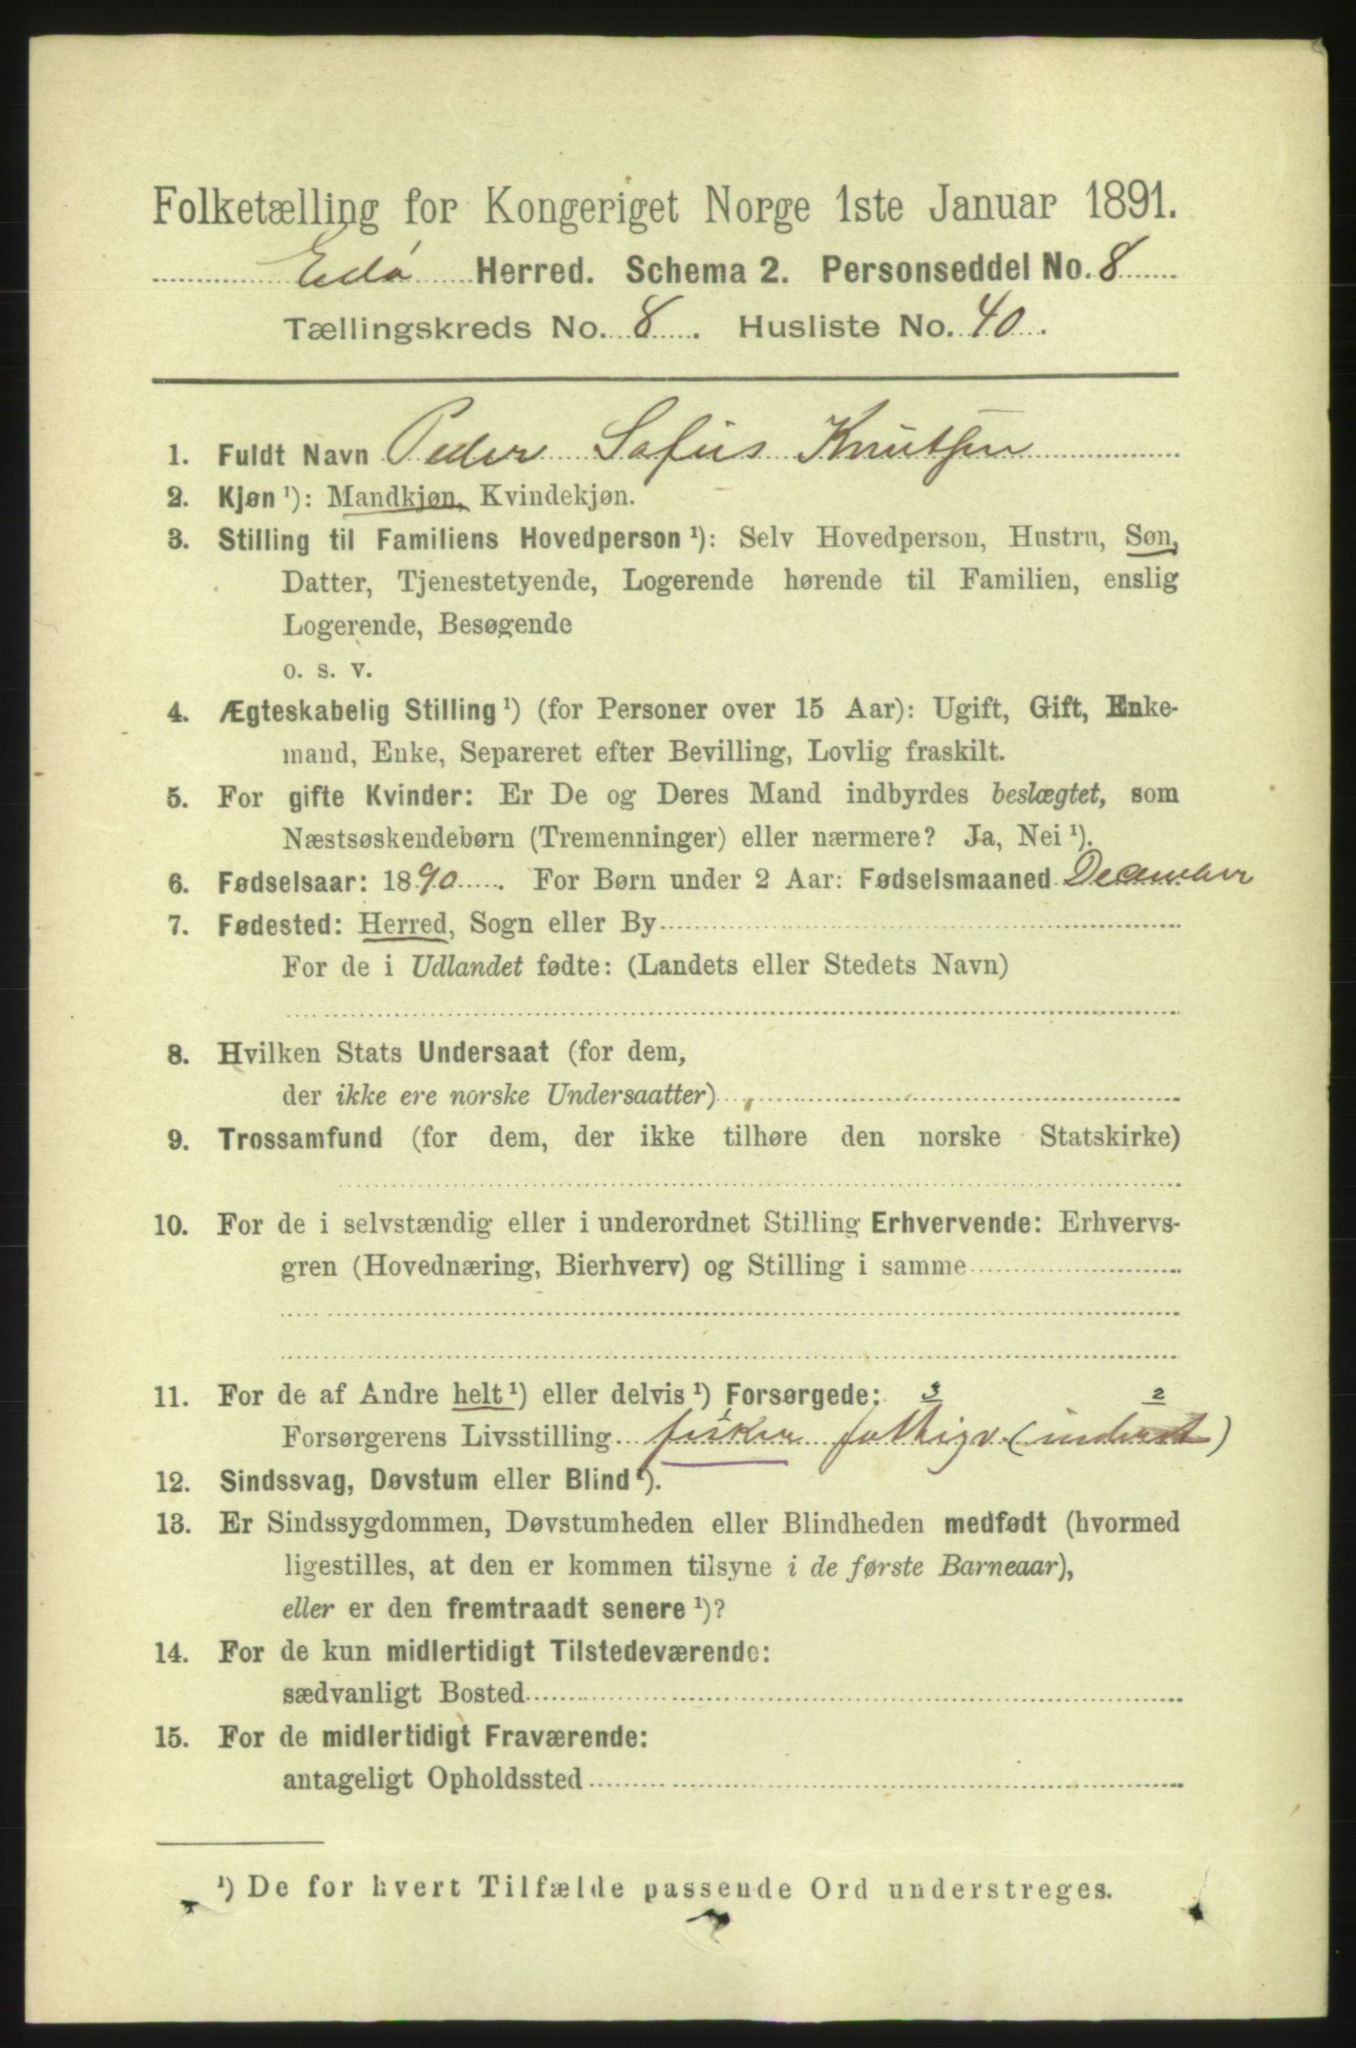 Folketælling for Kongeriget Norge 1ste Januar 1891.
Edø Herred. Schema 2. Personseddel No. 8
Tællingskreds No. 8. Husliste No. 40.
1. Fuldt Navn Peder Sofus Knutsen
2. Kjøn ¹): Mandkjøn, Kvindekjøn.
3. Stilling til Familiens Hovedperson ¹): Selv Hovedperson, Hustru, Søn,
Datter, Tjenestetyende, Logerende hørende til Familien, enslig
Logerende, Besøgende
o. s. v.
4. Ægteskabelig Stilling ¹) (for Personer over 15 Aar): Ugift, Gift, Enke-
mand, Enke, Separeret efter Bevilling, Lovlig fraskilt.
5. For gifte Kvinder: Er De og Deres Mand indbyrdes beslægtet, som
Næstsøskendebørn (Tremenninger) eller nærmere? Ja, Nei ¹).
6. Fødselsaar: 1890. For Børn under 2 Aar: Fødselsmaaned December
7. Fødested: Herred, Sogn eller By
For de i Udlandet fødte: (Landets eller Stedets Navn)
8. Hvilken Stats Undersaat (for dem,
der ikke ere norske Undersaatter)
9. Trossamfund (for dem, der ikke tilhøre den norske Statskirke)
10. For de i selvstændig eller i underordnet Stilling Erhvervende: Erhvervs-
gren (Hovednæring, Bierhverv) og Stilling i samme
11. For de af Andre helt ¹) eller delvis ¹) Forsørgede: 3 2
Forsørgerens Livsstilling fisker fattig (inderst)
12. Sindssvag, Døvstum eller Blind ¹).
13. Er Sindssygdommen, Døvstumheden eller Blindheden medfødt (hvormed
ligestilles, at den er kommen tilsyne i de første Barneaar),
eller er den fremtraadt senere ¹)?
14. For de kun midlertidigt Tilstedeværende:
sædvanligt Bosted
15. For de midlertidigt Fraværende:
antageligt Opholdssted
¹) De for hvert Tilfælde passende Ord understreges.